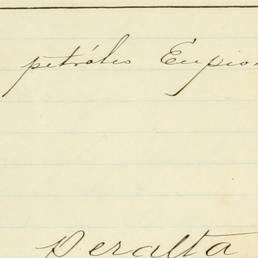 petróleo Eupion
Peralta